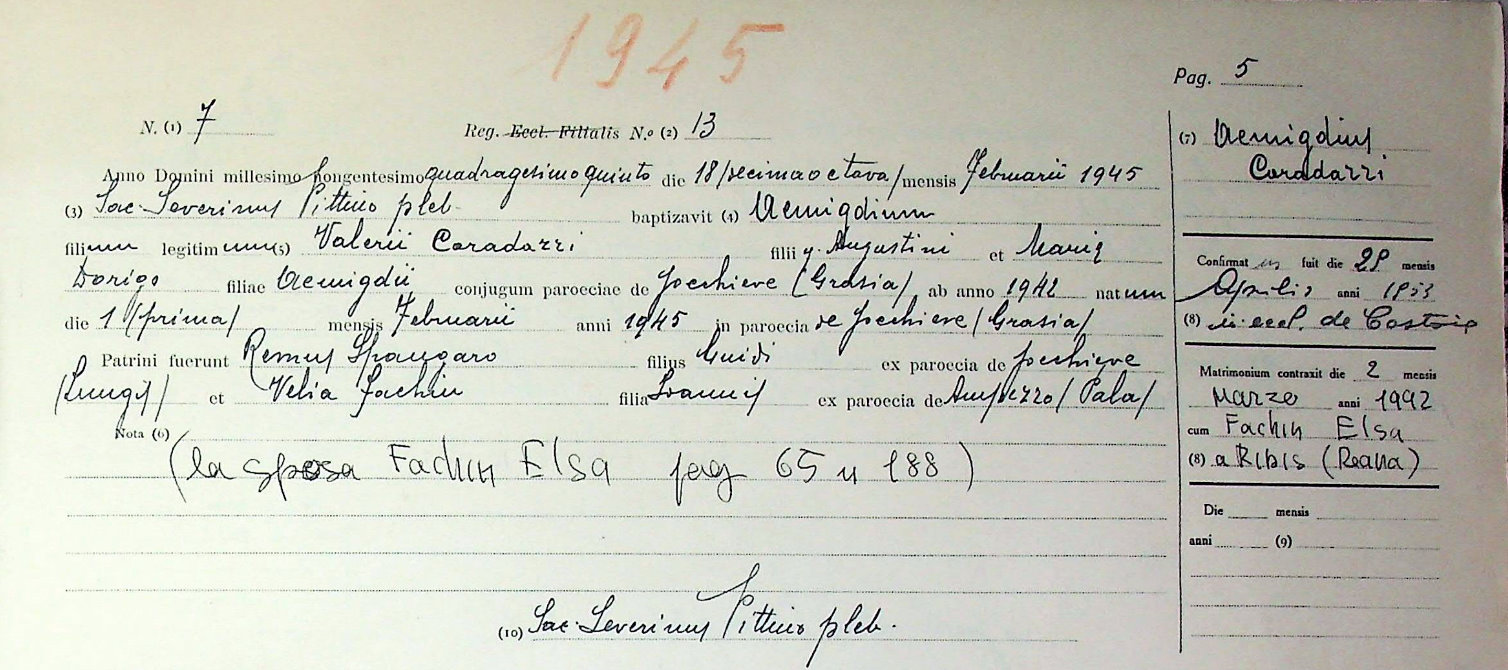 1945
Pag. 5
N. (1) 7 Reg. Eccl. Filialis N.o (2) 13
Anno Domini millesimo nongentesimo quadragesimo quinto die 18 /decima octava/ mensis Februarii 1945
(3) Sac. Severinus Pittino pleb. baptizavit (4) Aemigdium
filium legitimum (5) Valerii Coradazzi filii q. Augustini et Marię
Dorigo filiae Aemigdii conjugum paroeciae de ab anno 1942 natum
die 1 /prima/ mensis Februarii anni 1945 in paroecia de
Patrini fuerunt Remus Spangaro filius Guidi ex paroecia de
et Velia Fachin filia Ioannis ex paroecia de Ampezzo / Pala/
Nota (6)
(la sposa Fachin Elsa pag 65 n 188)
(10) Sac. Severinus Pittino pleb.
(7) Aemigdius
Coradazzi
Confirmatus fuit die 28 mensis
Aprilis anni 1953
(8) in eccl. de
Matrimonium contraxit die 2 mensis
Marzo anni 1992
cum Fachin Elsa
(8) a Ribis (Reana)
Die mensis
anni (9)